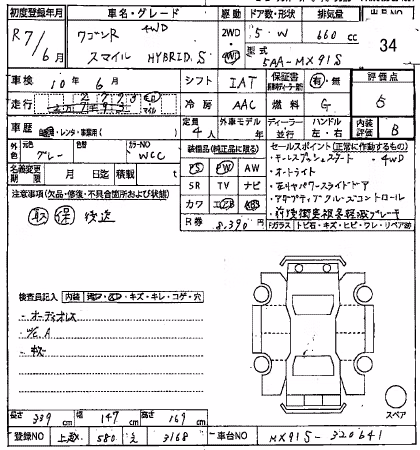 初度登録年月 車名・グレード 駆動 ドア数・形状 排気量 出品NO
R7/6月 ワゴンR 4WD 2WD 4WD 5・W 660cc 34
スマイル HYBRID S 型式 5AA-MX91S
車検 10年6月 シフト IAT 保証書 有・無 評価点
走行 km マイル 冷房 AAC 燃料 G 5
車歴 レンタ・事業用( ) 定員 4人 外車モデル 年 ディーラー・並行 ハンドル 左・右 内装評価 B
外色 グレー 色替 カラーNO WCC
装備品(純正品に限る) セールスポイント(正常に作動するもの)
名義変更期限 月 日 積載 t
PS PW AW
・キーレスプッシュスタート ・4WD
注意事項(欠品・修復・不具合箇所および状態)
SR TV ナビ
・オートライト
取 保 後送
・左側パワースライドドア
カワ エアB ABS
・アダプティブクルーズコントロール
R券 8,390円
・前後衝突被害軽減ブレーキ
「ガラス」トビ石・キズ・ヒビ・ワレ・リペア跡
検査員記入 内装 キズ・キレ・コゲ・穴
・オーディオレス
長さ 339cm 幅 147cm 高さ 169cm
スペア
登録NO 580 え 3168 車台NO MX91S-320641